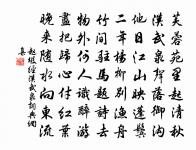 芙蓉苑里起清秋
漢武泉聲落御溝
他日江山映蓬鬢
二年楊柳別漁舟
竹間駐馬題詩去
物外何人識醉遊
盡把歸心付紅葉
晚來隨水向東流
趙嘏經漢武泉詞典網
集